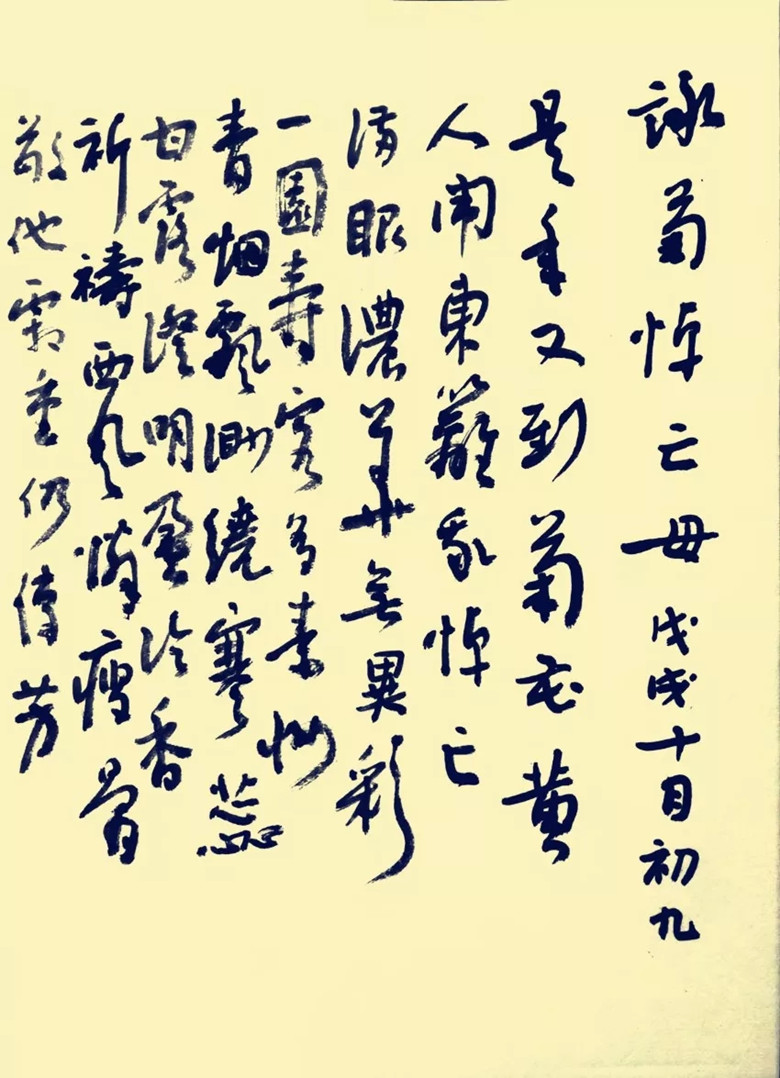 詠菊悼亡母 戊戌十月初九
是年又到菊花黄
人闹東籬我悼亡
满眼濃華無異彩
一園壽客素妝
青烟飄渺繞寒蕊
甘露澄明盈冷香
祈禱西風憐瘦骨
敬他霜重仍傳芳